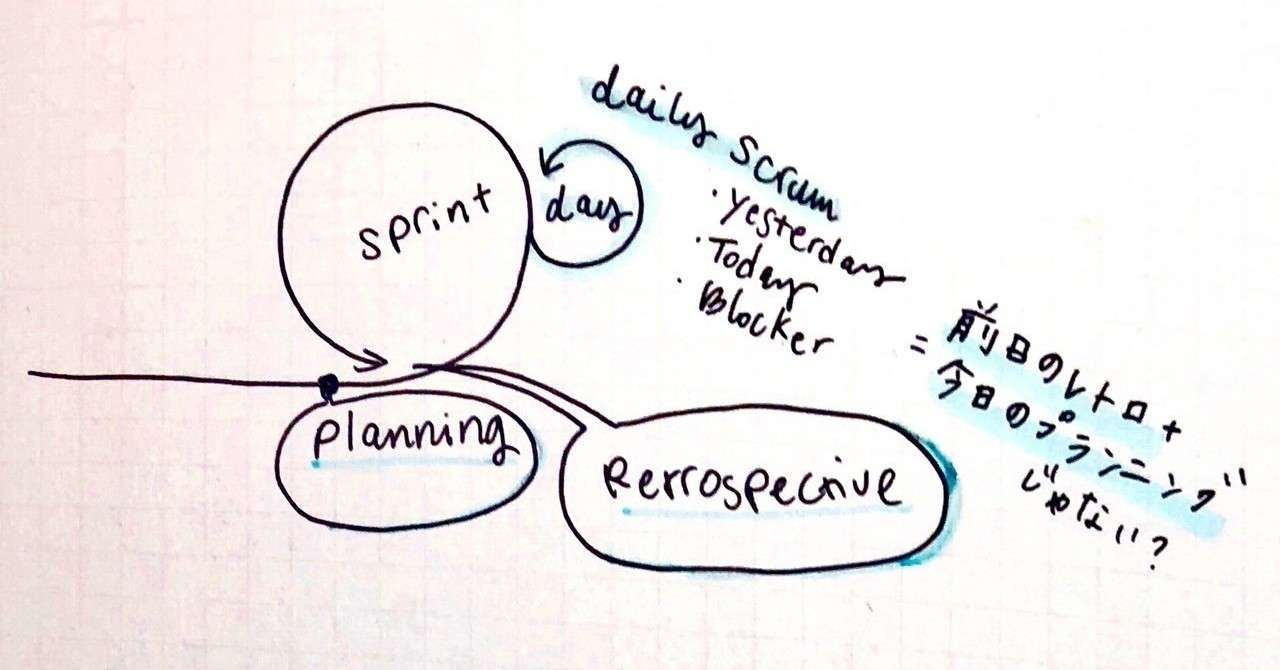 daily scrum
・Yesterday
・Today
・Blocker
sprint
day
= 前日のレトロ +
今日のプランニング
じゃない?
planning
Retrospective